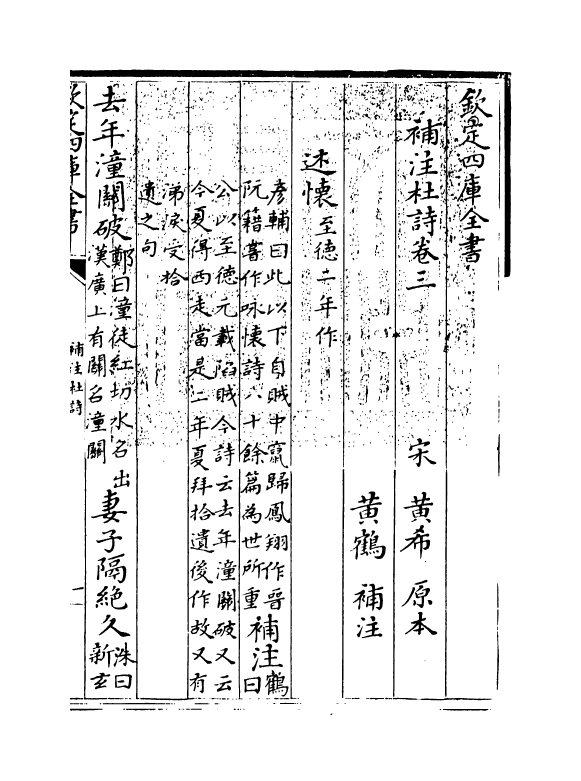 欽定四庫全書
補注杜詩卷三
宋 黃希 原本
黃鶴 補注
述懷至德二年作
彥輔曰此以下自賊中竄歸鳳翔作晉
阮籍嘗作咏懷詩八十餘篇為世所重補注鶴曰
公以至德元載陷賊今詩云去年潼關破又云
今夏得西走當是二年夏拜拾遺後作故又有
涕淚受拾
遺之句
去年潼關破鄭曰潼徒紅切水名出
漢廣上有關名潼關妻子隔絶久洙曰
新玄
欽定四庫全書
補注杜詩
一